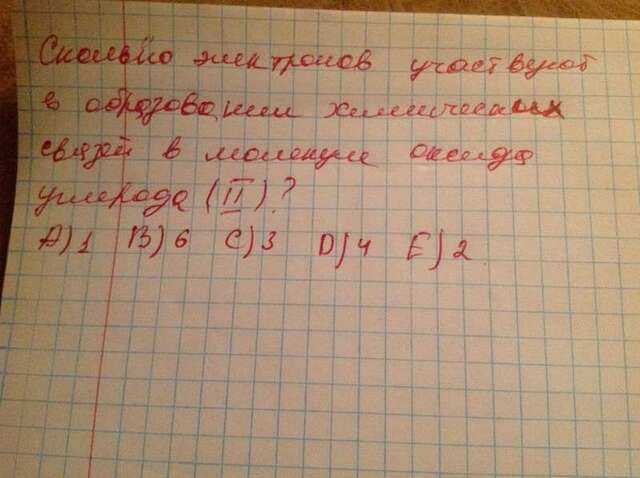 Сколько электронов участвуют
в образовании химических
связей в молекуле оксида
углерода (II)?
A) 1 B) 6 C) 3 D) 4 E) 2